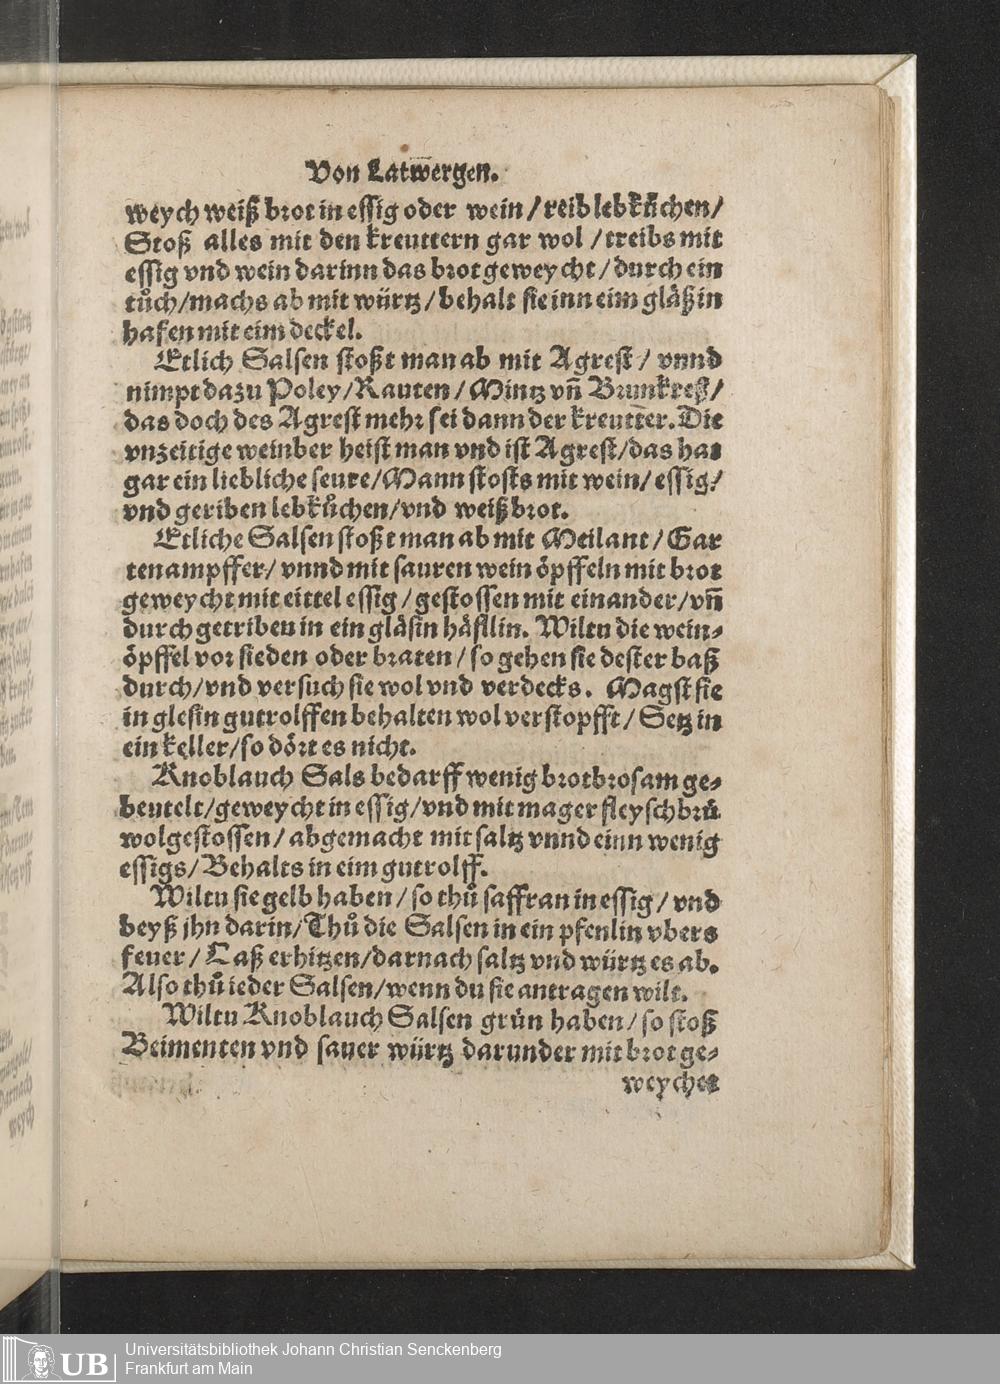 Von Latw̅ergen.
weych weiß brot in essig oder wein / reib lebkůchen /
Stoß alles mit den kreuttern gar wol / treibs mit
essig vnd wein darinn das brot geweycht / durch ein
tůch / machs ab mit würtz / behalt sie inn eim gläßin
hafen mit eim deckel.
Etlich Salsen stoßt man ab mit Agrest / vnnd
nimpt dazu Poley / Rauten / Mintz vn̅ Brunkreß /
das doch des Agrest mehr sei dann der kreut̅er. Die
vnzeitige weinber heist man vnd ist Agrest / das hat
gar ein liebliche seure / Mann stosts mit wein / essig /
vnd geriben lebkůchen / vnd weißbrot.
Etliche Salsen stoßt man ab mit Meilant / Gar
tenampffer / vnnd mit sauren wein öpffeln mit brot
geweycht mit eittel essig / gestossen mit einander / vn̅
durch getriben in ein gläsin häfilin. Wiltu die wein⸗
öpffel vor sieden oder braten / so gehen sie dester baß
durch / vnd versuch sie wol vnd verdecks. Magst sie
in glesin gutrolffen behalten wol verstopfft / Setz in
ein keller / so dört es nicht.
Knoblauch Sals bedarff wenig brotbrosam ge⸗
beutelt / geweycht in essig / vnd mit mager fleyschbrů
wolgestossen / abgemacht mit saltz vnnd einn wenig
essigs / Behalts in eim gutrolff.
Wiltu sie gelb haben / so thů saffran in essig / vnd
beyß jhn darin / Thů die Salsen in ein pfenlin vbers
feuer / Laß erhitzen / darnach saltz vnd würtz es ab.
Also thů ieder Salsen / wenn du sie antragen wilt.
Wiltu Knoblauch Salsen grůn haben / so stoß
Beimenten vnd sauer würtz darunder mit brot ge⸗
weychet
UB
Universitätsbibliothek Johann Christian Senckenberg
Frankfurt am Main